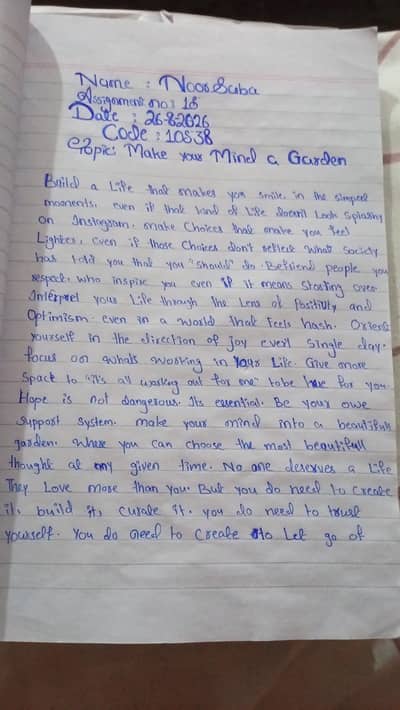 Name : Noor Saba
Assignment no: 16
Date : 26-82026
Code : 10538
Topic: Make your Mind a Garden
Build a Life that makes you smile in the simpest
moments, even if that kind of Life doesn't Look Splashy
on Instagram. make Choices that make you feel
Lighter, even if those Choices don't reflect what Society
has told you that you "should" do. Befriend people you
respect, who inspire you even if it means starting over.
Interpret your Life through the Lens of Positivity and
Optimism. even in a world that feels hash. Orient
yourself in the direction of joy every single day.
focus on what's working in your Life. Give more
Space to "it's all working out for me" to be true for you.
Hope is not dangerous. Its essential. Be your owe
support system. make your mind into a beautifull
garden. Where you can choose the most beautifull
thought at any given time. No one deserves a Life
They Love more than you. But you do need to create
it, build it, curate it. you do need to trust
yourself. You do need to create to Let go of